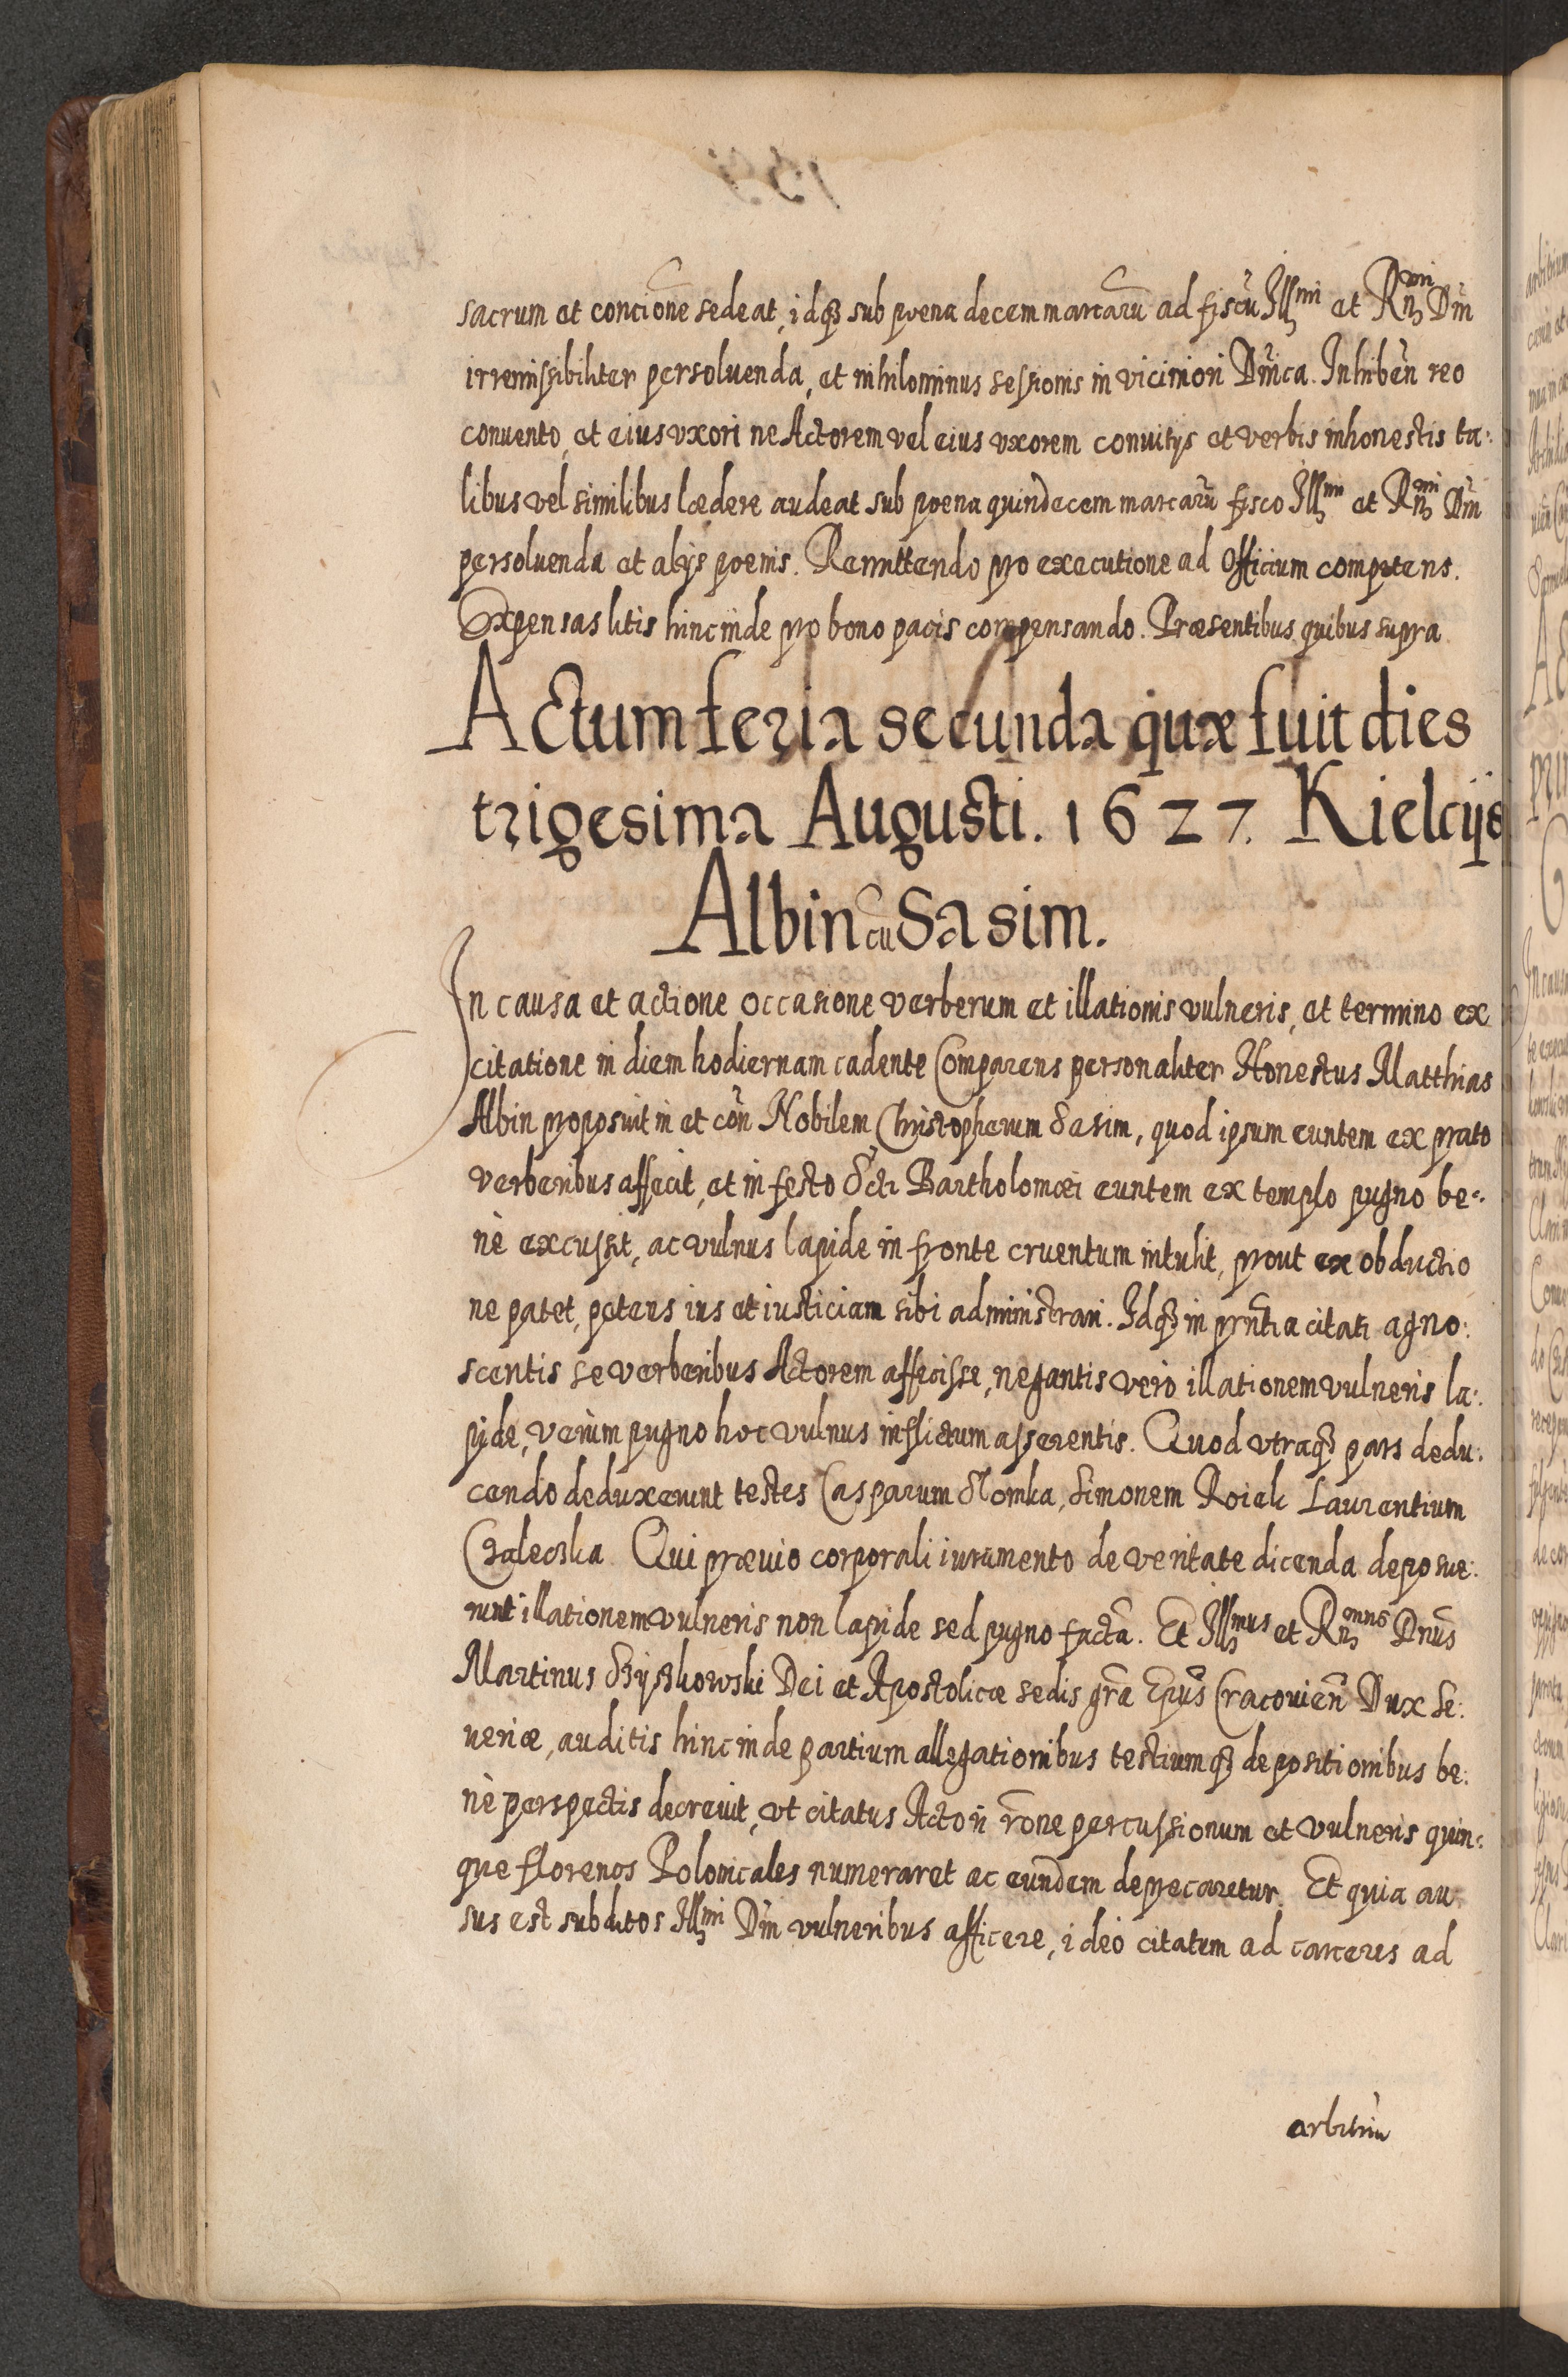 sacrum et concione sedeat, idq₃ sub poena decem marcarũ ad fiscũ Illmi et Rndmi Dni
irremissibiliter persoluenda, et nihilominus sessionis in viciniori Dnica. Inhibeñ reo
conuento, et eius vxori ne Actorem vel eius vxorem conuitijs et verbis inhonestis ta:
libus vel similibus lædere audeat sub poena quindecem marcarũ fisco Illmi et Rndmi Dni
persoluenda et alijs poenis. Remittendo pro executione ad Officium competens.
Expensas litis hinc inde pro bono pacis compensando. Præsentibus quibus supra
Actum feria secunda quæ fuit dies
trigesima Augusti. 1627. Kielcijs
Albin cũ Sasim.
In causa et actione occasione verberum et illationis vulneris, et termino ex
citatione in diem hodiernam cadente Comparens personaliter Honestus Matthias
Albin proposuit in et coñ Nobilem Christopherum Sasim, quod ipsum euntem ex prato
verberibus affecit, et in festo Scti Bartholomæi euntem ex templo pugno be:
nè excussit, ac vulnus lapide in fronte cruentum intulit, prout ex obductio
ne patet, petens ius et iusticiam sibi administrari. Idq₃ in prñtia citati agno:
scentis se verberibus Actorem affecisse, negantis verò illationem vulneris la:
pide, verùm pugno hoc vulnus inflictum asserentis. Quod vtraq₃ pars dedu:
cendo deduxerunt testes Casparum Slomka, Simonem Roiek Laurentium
Czaleczka. Qui præuio corporali iuramento de veritate dicenda deposue:
runt illationem vulneris non lapide sed pugno factã. Et Illmus et Rndmus Dnus
Martinus Szyszkowski Dei et Apostolicæ sedis grã Epũs Cracovieñ Dux Se:
veriæ, auditis hinc inde partium allegationibus testiumq₃ depositionibus be:
nè perspectis decreuit, vt citatus Actori rõne percussionum et vulneris quin:
que florenos Polonicales numeraret ac eundem deprecaretur. Et quia au
sus est subditos Illmi Dni vulneribus afficere, ideò citatum ad carceres ad
arbitriũ